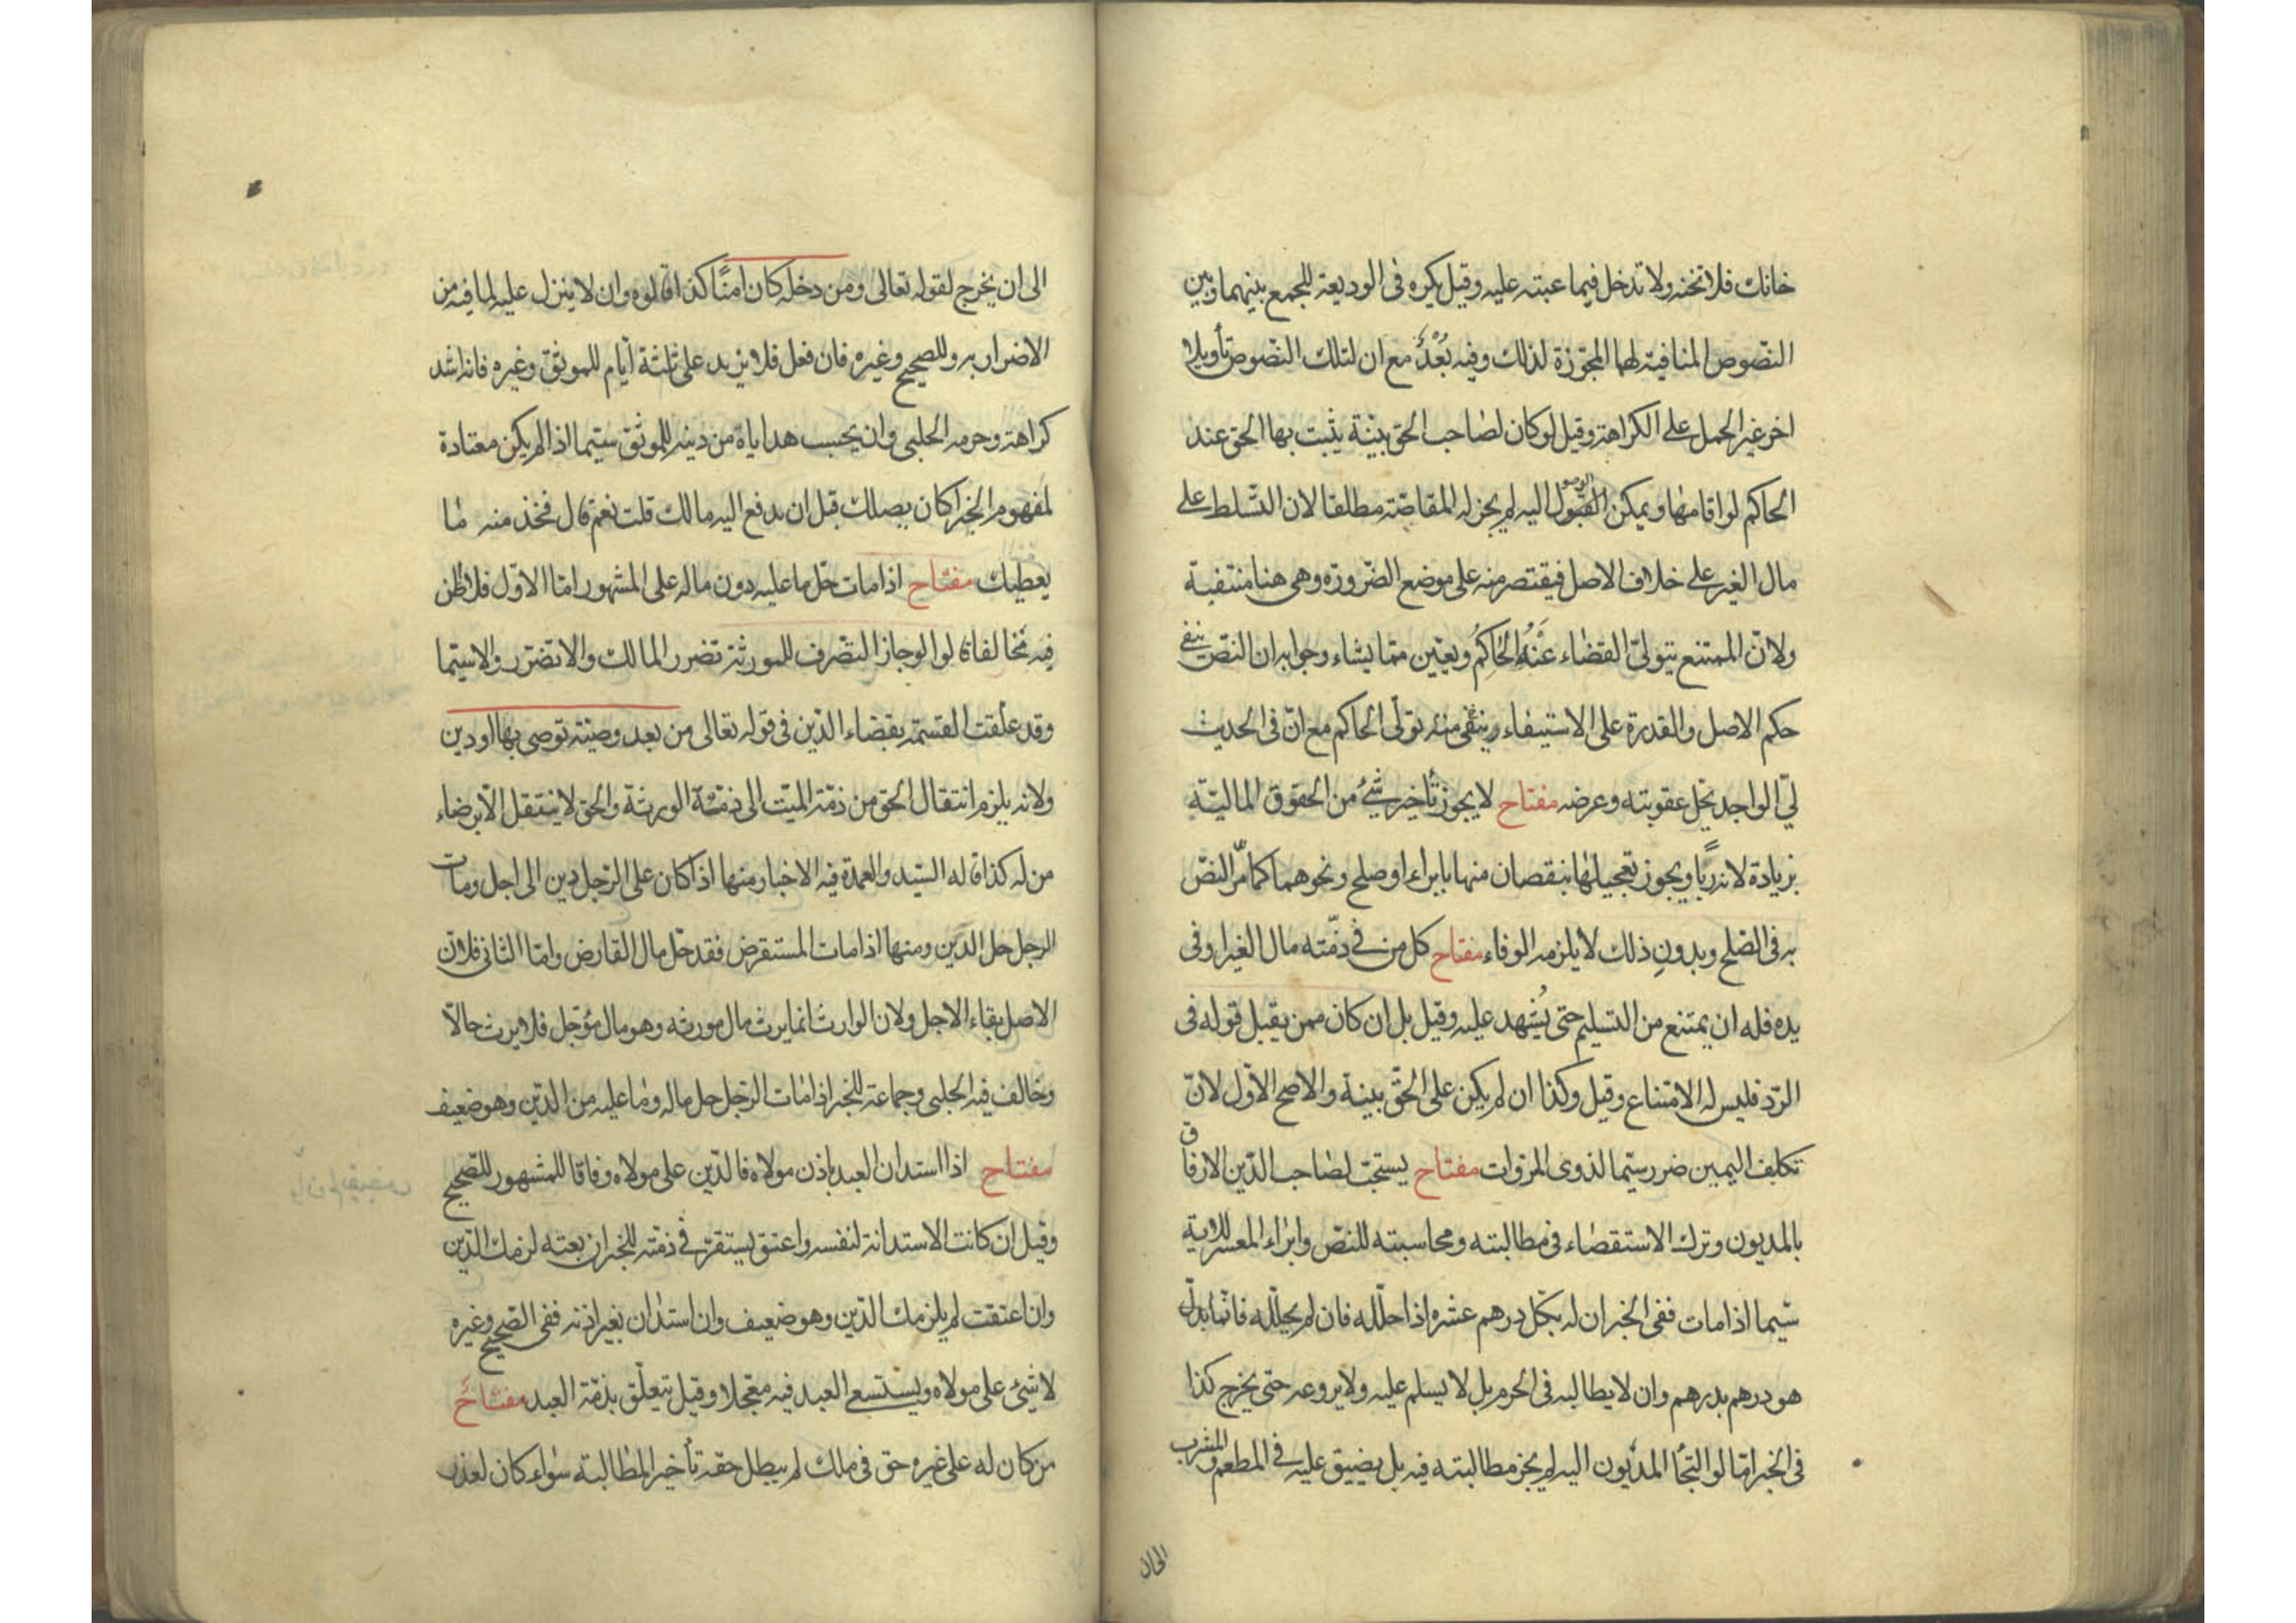 خانك فلا تخنه ولا تدخل فيما عبته عليه وقيل يكره فى الوديعة للجمع بينهما وبين
النصوص المنافية لهما المجوّزة لذلك وفيه بُعْدٌ مع ان لتلك النصوص تأويلا
اخر غير الحمل على الكراهة وقيل لو كان لصاحب الحق بينة يثبت بها الحق عند
الحاكم لو اقامها ويمكن الوصول اليه لم يجز له المقاصّة مطلقا لان التسلط على
مال الغير على خلاف الاصل فيقتصر منه على موضع الضرورة وهى هنا منتفية
ولانّ الممتنع يتولىّ القضاء عَنْهُ الحَاكِمُ ويعيّن مما يشاء وجوابه ان النصّ ينفى
حكم الاصل والقدرة على الاستيفاء وينفى منه تولّى الحاكم مع انّ فى الحديث
ليّ الواجد يحلّ عقوبته وعرضه مفتاح لا يجوز تأخير شئ من الحقوق الماليّة
بزيادة لانه ربًا ويجوز تعجيلها بنقصان منها بابراء او صلح ونحوهما كما مرّ النصّ
به فى الصّلح وبدونِ ذلك لا يلزمه الوفاء مفتاح كل من فى ذمّته مال الغير او فى
يده فله ان يمتنع من التسليم حتى يُشهد عليه وقيل بل ان كان ممن يقبل قوله فى
الردّ فليس له الامتناع وقيل وكذا ان لم يكن على الحقّ بينة والاصح الاوّل لانّ
تكليف اليمين ضرر سيّما لذوى المروّات مفتاح يستحبّ لصاحب الدّين الارفاق
بالمديون وترك الاستقصاء فى مطالبته ومحاسبته للنصّ وابراء المعسر للاية
سيّما اذا مات ففى الخبر ان له بكلّ درهم عشره اذا حلّله فان لم يحلّله فانّما بدل
هو درهم بدرهم وان لا يطالبه فى الحرم بل لا يسلم عليه ولا يروعه حتى يخرج كذا
فى الخبر امّا لو التجأ المديون اليه لم يجز مطالبته فيه بل يضيق عليه فى المطعم والمشرب
الى ان يخرج لقوله تعالى ومن دخله كان امنًا كذا قالوه وان لا ينزل عليه لما فيه من
الاضرار به وللصحيح وغيره فان فعل فلا يزيد على ثلثة أيام للموثق وغيره فانه اشد
كراهة وحرمه الحلبى وان يحسب هداياه من دينه للموثق سيّما اذا لم يكن معتادة
لمفهوم الخبر اكان يصلك قبل ان يدفع اليه مالك قلت نعم قال فخذ منه ما
يعطيك مفتاح اذا مات حلّ ما عليه دون ماله على المشهور امّا الاوّل فلا ظن
فيه مخالفا قالوا لو جاز التصرف للمورثة تضرر المالك والا تضرّر والاسيّما
وقد علّقت القسمة بقضاء الدّين فى قوله تعالى من بعد وصيّة توصى بها او دين
ولانه يلزم انتقال الحق من ذمّة الميّت الى ذمّة الورثة والحق لا ينتقل الّا برضاء
من له كذا قاله السّيد والعمدة فيه الاخبار منها اذا كان على الرّجل دين الى اجل ومات
الرجل حل الدّين ومنها اذا مات المستقرض فقد حلّ مال القارض وامّا الثانى فلانّ
الاصل بقاء الاجل ولان الوارث انما يرث مال مورثه وهو مال مؤجّل فلا يرث حالّا
وخالف فيه الحلبى وجماعة للخبر اذا مات الرّجل حل ماله وما عليه من الدّين وهو ضعيف
مفتاح اذا استدان العبد باذن مولاه فالدّين على مولاه وفاقا للمشهور للصّحيح
وقيل ان كانت الاستدانة لنفسه واعتق يستقرّ فى ذمّته للخبر ان بعته لزمك الدّين
وان اعتقت لم يلزمك الدّين وهو ضعيف وان استدان بغير اذنه ففى الصّحيح وغيره
لا شئ على مولاه ويستسعى العبد فيه معجّلا وقيل تيعلّق بذمّة العبد مفتاح
من كان له على غيره حق فى ملك لم يبطل حقه تأخير المطالبة سواء كان لعذر